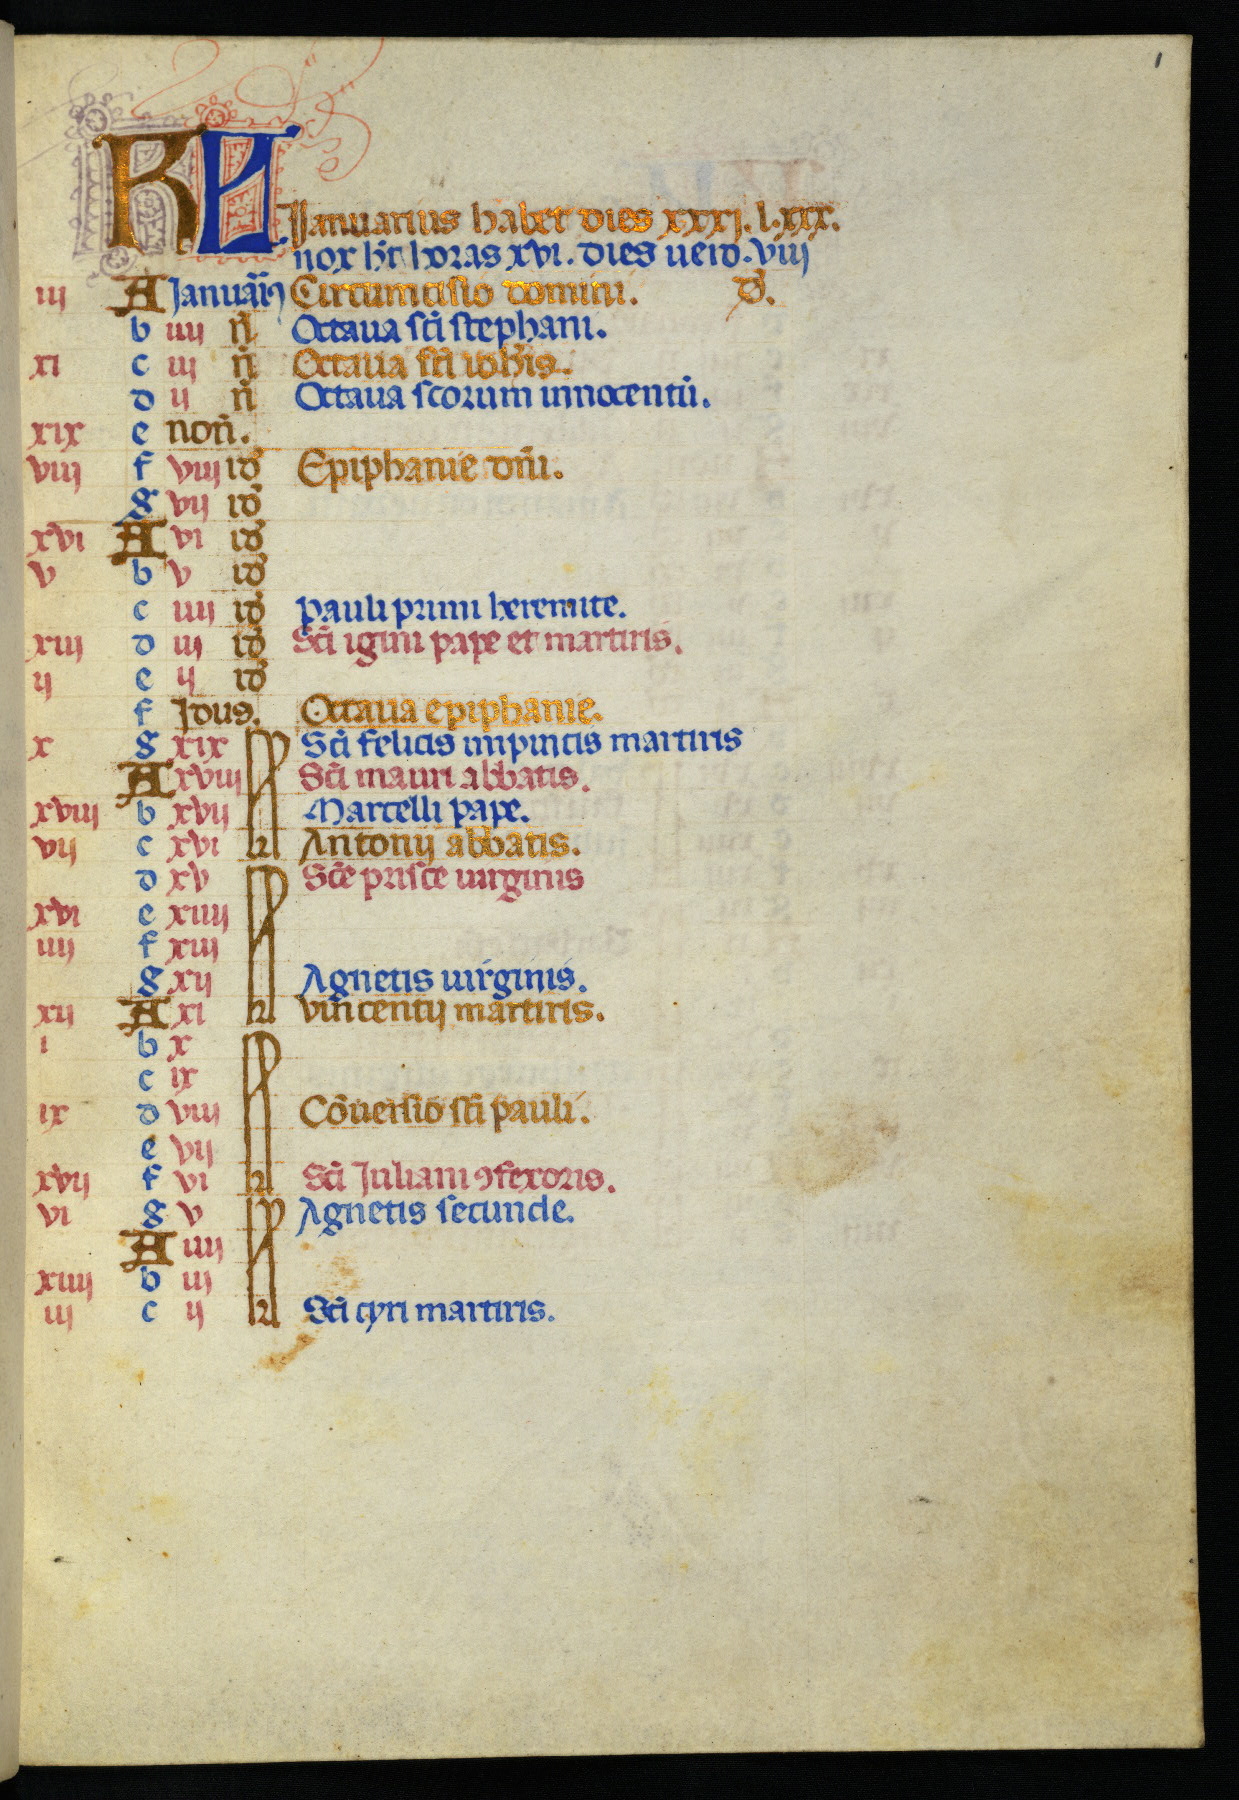 1
KL Januarius habet dies xxxj. l. xxx.
nox ht horas xvi. dies uero. viij
iij A Januarius Circumcisio domini. d.
b iiij n Octaua sci stephani.
xi c iij n Octaua sci iohis.
d ij n Octaua scorum innocentu.
xix e non.
viij f viij id Epiphanie dni.
g vij id
xvi A vi id
v b v id
c iiij id Pauli primi heremite.
xiij d iij id Sci igini pape et martiris.
ij e ij id
f Idus. Octaua epiphanie.
x g xix Sci felicis inpincis martiris
A xviij Sci mauri abbatis.
xviij b xvij Marcelli pape.
vij c xvi kl Antonij abbatis.
d xv Sce prisce uirginis
xvi e xiiij
iiij f xiij
g xij Agnetis uirginis.
xij A xi kl vincentij martiris.
i b x
c ix
ix d viij Conuersio sci pauli.
e vij
xvij f vi kl Sci Juliani 9fexoris.
vi g v Agnetis secunde.
A iiij
xiiij b iij
iij c ij kl Sci cyri martiris.